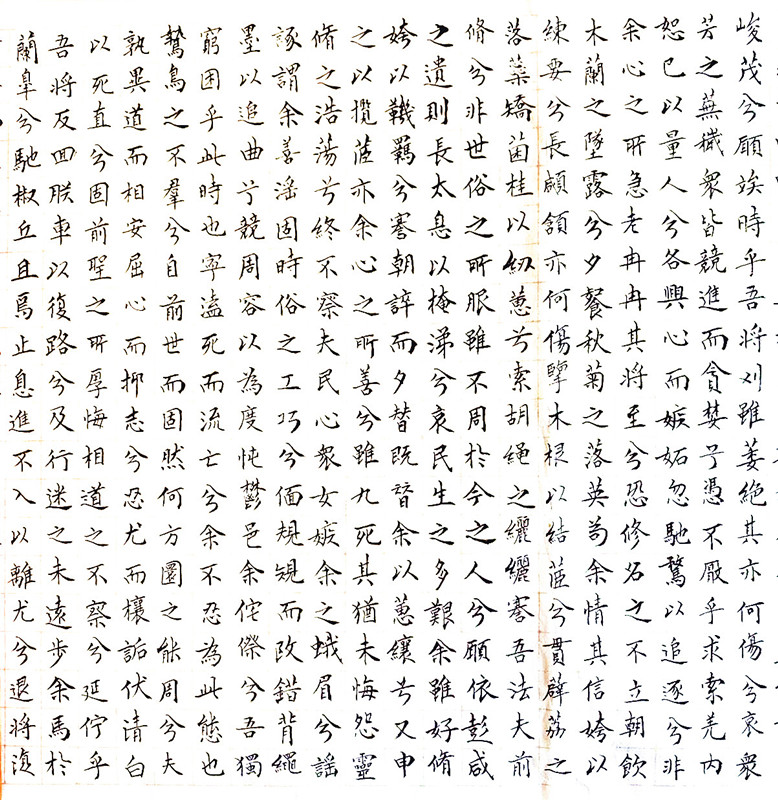 峻茂兮願竢時乎吾將刈雖萎絕其亦何傷兮哀衆
芳之蕪穢衆皆競進而貪婪兮憑不厭乎求索羌內
恕已以量人兮各興心而嫉妬忽馳騖以追逐兮非
余心之所急老冉冉其將至兮恐修名之不立朝飲
木蘭之墜露兮夕餐秋菊之落英苟余情其信姱以
練要兮長顑頷亦何傷擥木根以結茝兮貫薜荔之
落蘂矯菌桂以紉蕙兮索胡繩之纚纚謇吾法夫前
脩兮非世俗之所服雖不周於今之人兮願依彭咸
之遺則長太息以掩涕兮哀民生之多艱余雖好脩
姱以鞿羈兮謇朝誶而夕替既替余以蕙纕兮又申
之以攬茝亦余心之所善兮雖九死其猶未悔怨靈
脩之浩蕩兮終不察夫民心衆女嫉余之蛾眉兮謠
諑謂余善淫固時俗之工巧兮偭規矩而改錯背繩
墨以追曲兮競周容以為度忳鬱邑余侘傺兮吾獨
窮困乎此時也寧溘死而流亡兮余不忍為此態也
鷙鳥之不羣兮自前世而固然何方圜之能周兮夫
孰異道而相安屈心而抑志兮忍尤而攘詬伏清白
以死直兮固前聖之所厚悔相道之不察兮延佇乎
吾將反回朕車以復路兮及行迷之未遠步余馬於
蘭皋兮馳椒丘且焉止息進不入以離尤兮退將復